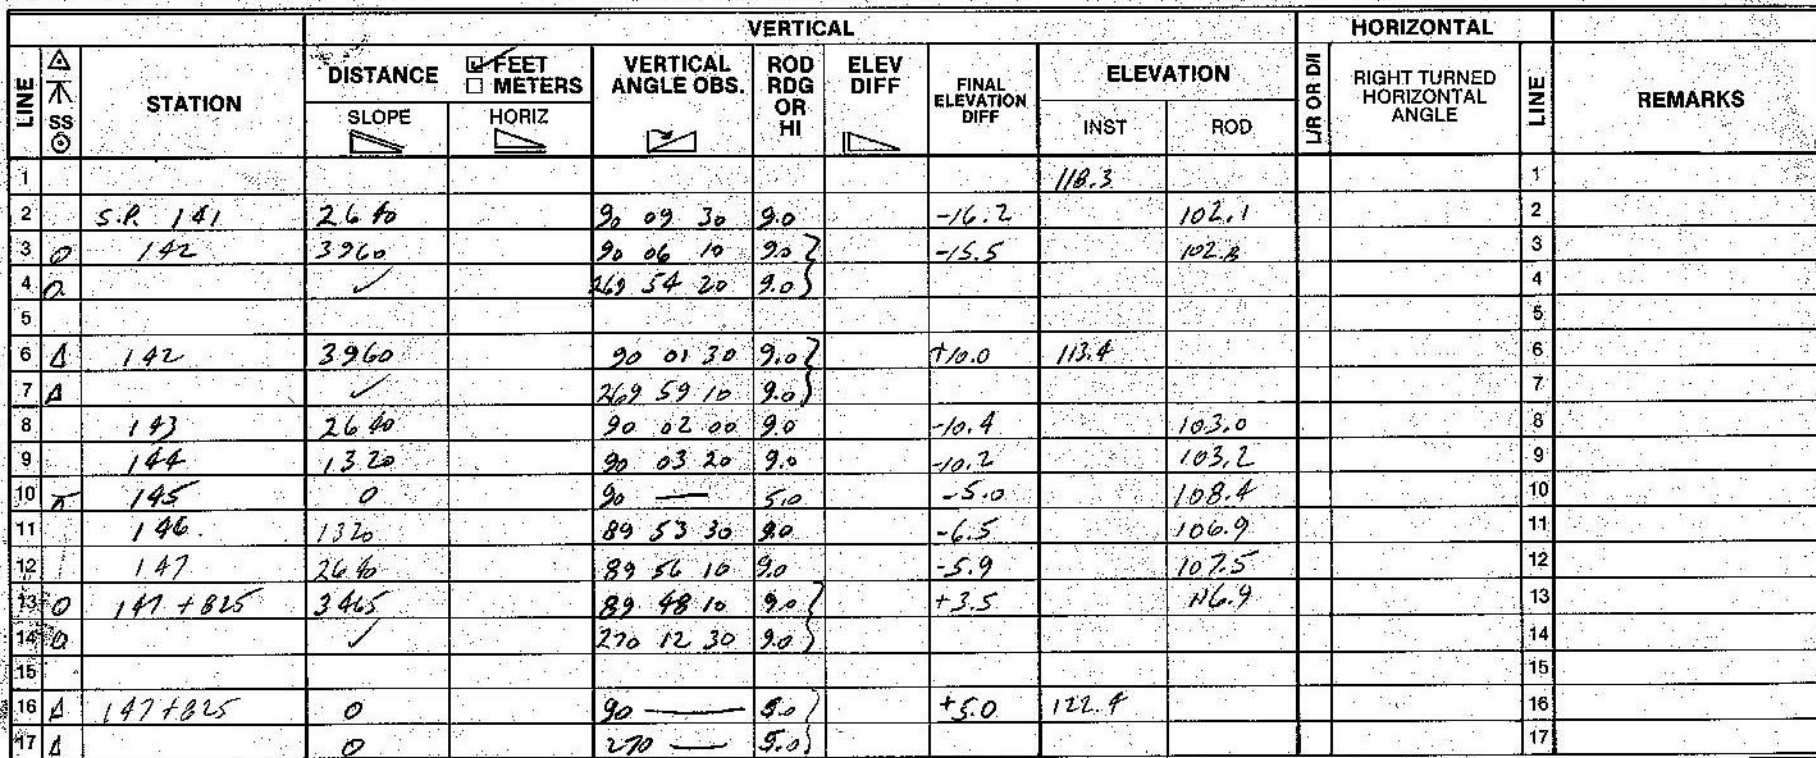 VERTICAL HORIZONTAL
LINE SS STATION DISTANCE FEET METERS VERTICAL ANGLE OBS. ROD RDG OR HI ELEV DIFF FINAL ELEVATION DIFF ELEVATION L/R OR D/I RIGHT TURNED HORIZONTAL ANGLE LINE REMARKS
SLOPE HORIZ INST ROD
1 118.3 1
2 S.P. 141 2640 90 09 30 9.0 -16.2 102.1 2
3 142 3960 90 06 10 9.0 -15.5 102.8 3
4 ✓ 269 54 20 9.0 4
5 5
6 Δ 142 3960 90 01 30 9.0 +10.0 113.4 6
7 Δ ✓ 269 59 10 9.0 7
8 143 2640 90 02 00 9.0 -10.4 103.0 8
9 144 1320 90 03 20 9.0 -10.2 103.2 9
10 145 0 90 — 5.0 -5.0 108.4 10
11 146 1320 89 53 30 9.0 -6.5 106.9 11
12 147 2640 89 56 10 9.0 -5.9 107.5 12
13 147+825 3465 89 48 10 9.0 +3.5 116.9 13
14 ✓ 270 12 30 9.0 14
15 15
16 Δ 147+825 0 90 — 5.0 +5.0 122.4 16
17 Δ 0 270 — 5.0 17